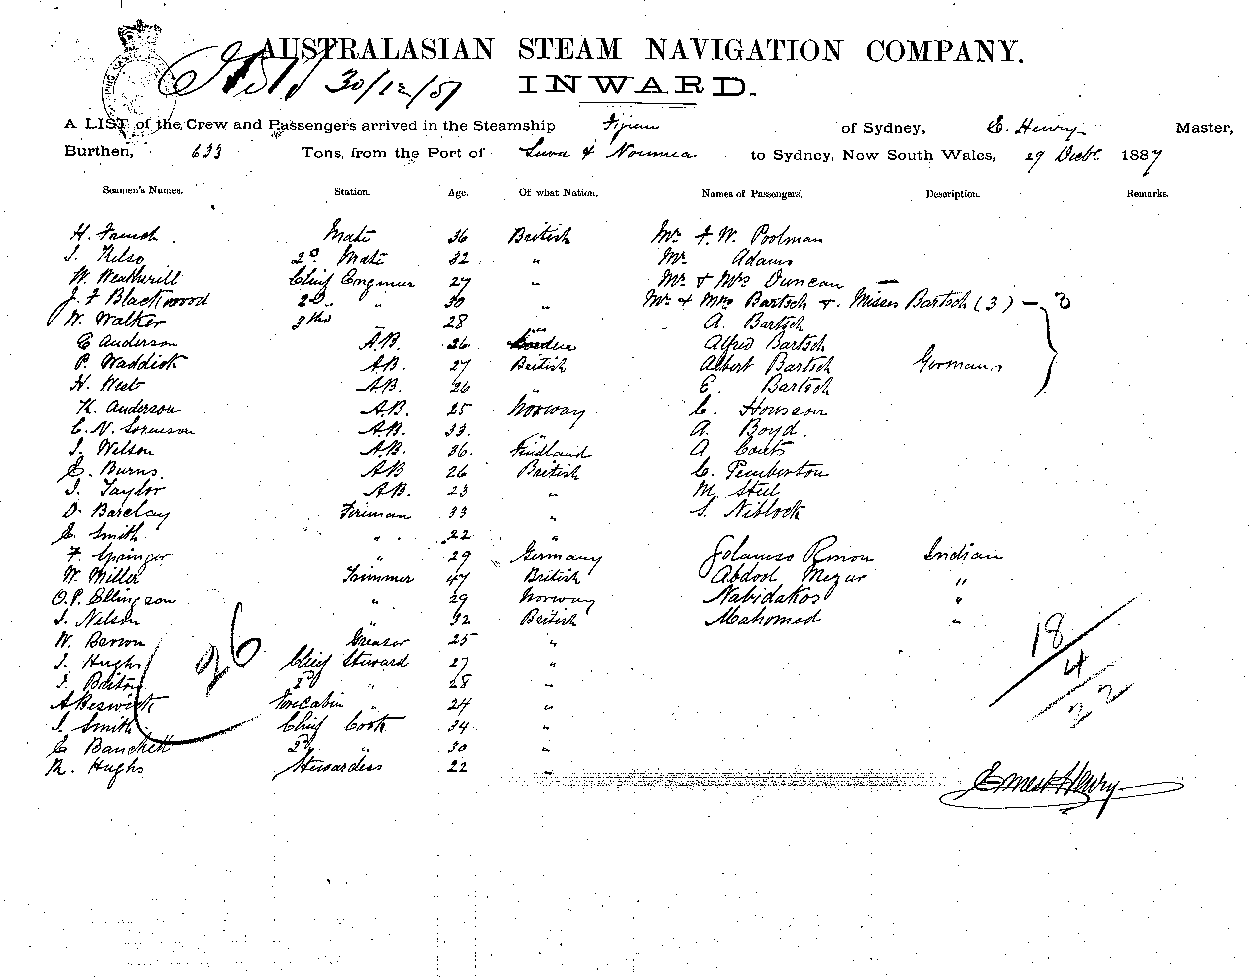 AUSTRALASIAN STEAM NAVIGATION COMPANY.
30/12/87
INWARD.
A LIST of the Crew and Passengers arrived in the Steamship Fijian of Sydney, E. Henry Master,
Burthen, 633 Tons, from the Port of Suva & Noumea to Sydney, New South Wales, 29 Decbr 1887
Seamen's Names. Station. Age. Of what Nation. Names of Passengers. Description. Remarks.
H. French Mate 36 British Mr F. W. Poolman
J. Kelso 2d Mate 32 " Mr Adams
W. Weatherill Chief Engineer 27 " Mr & Mrs Duncan —
J. F Blackwood 2d " 30 " Mr & Mrs Bartsch & Misses Bartsch (3) — 3
W. Walker 3rd " 28 " A. Bartsch
E Anderson A.B. 26 Alfred Bartsch
P. Waddick A.B. 27 British Albert Bartsch Germans
H. West A.B. 26 " E. Bartsch
K. Anderson A.B. 25 Norway C. Howson
C. N. Sorenson A.B. 33 " A. Boyd.
J. Wilson A.B. 36 Findland A Couts
C. Burns A.B 26 British C. Pemberton
J. Taylor A.B. 23 " M. Stul
D. Barclay Fireman 33 " S. Niblock
C. Smith " 22 "
F. Springer " 29 Germany Indian
W. Miller Trimmer 47 British Abdool "
O. P. Ellingson " 29 Norway Nabidakos "
J. Nelson " 32 British Mahomed "
W. Barron Greaser 25 "
J. Hughs Chief Steward 27 "
J. Briton 2d " 28 "
A Beswick Forecabin " 24 "
J. Smith Chief Cook 34 "
C 2d " 30 "
R. Hughs Stewardess 22 "
26
18
4
22
Ernest Henry